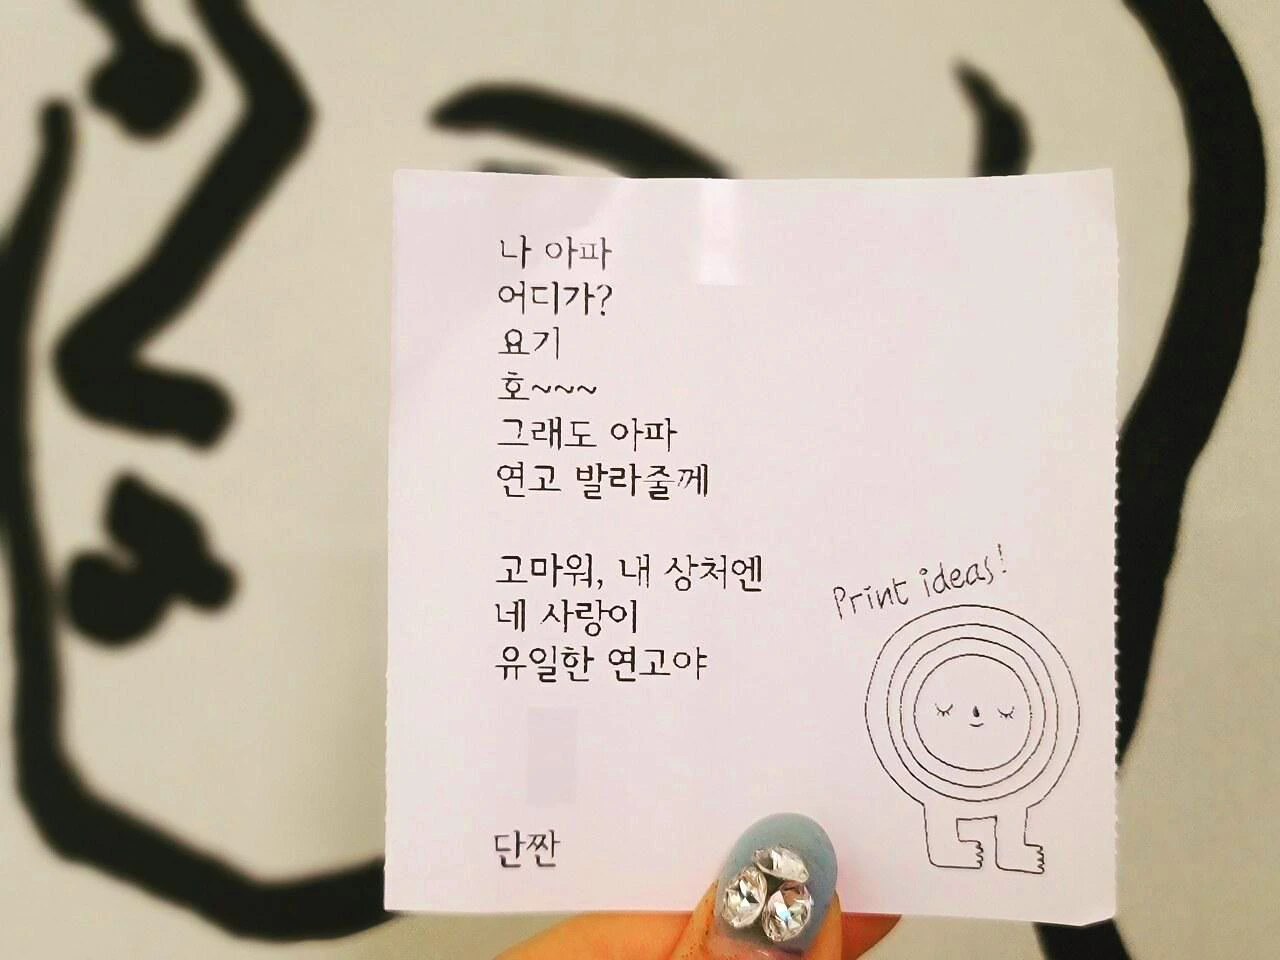 나 아파
어디가?
요기
호~~~
그래도 아파
연고 발라줄께
고마워, 내 상처엔
네 사랑이
유일한 연고야
Print ideas!
단짠